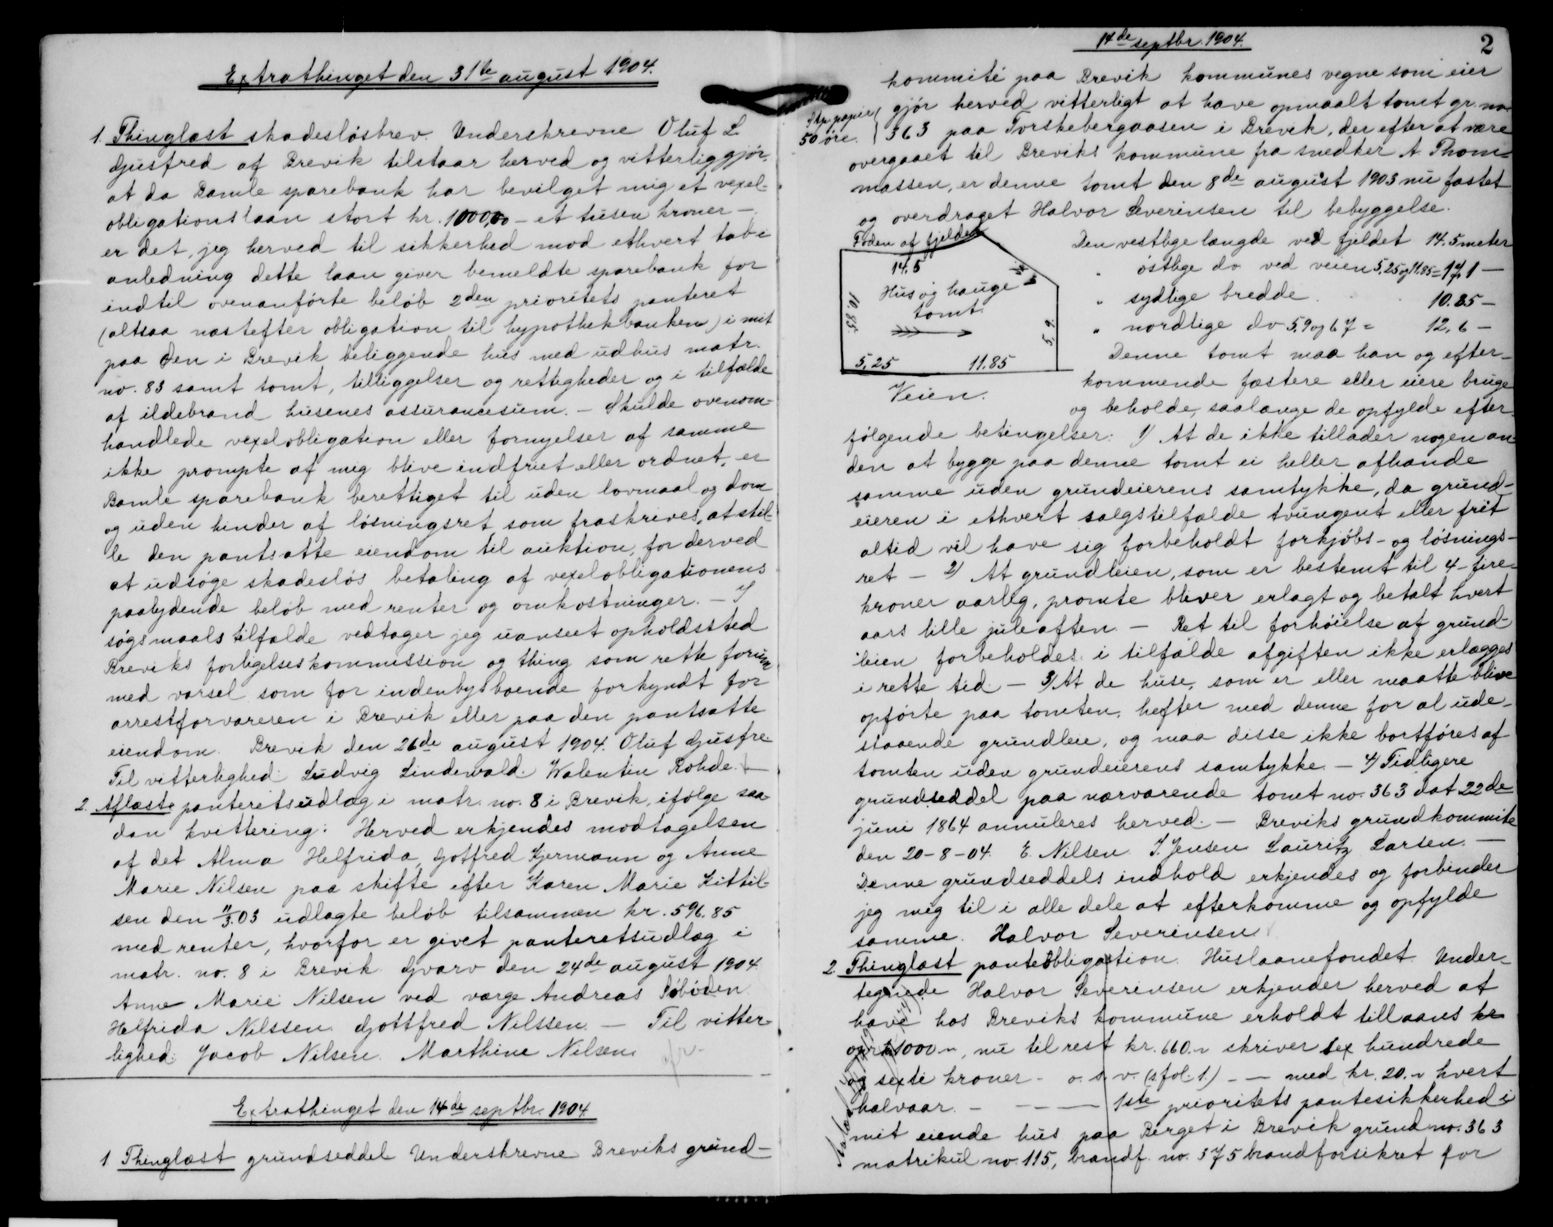 Extrathinget den 31te august 1904.
1. Thinglæst skadesløsbrev. Underskrevne Oluf L.
Gjusfred af Brevik tilstaar herved og vitterliggjør,
at da Bamle sparebank har bevilget mig et vexel-
obligationslaan stort kr. 1000,00 – et tusen kroner –
er det, jeg herved til sikkerhed mod ethvert tab i
anledning dette laan giver bemeldte sparebank for
indtil ovenanførte beløb 2den prioritets panteret
(altsaa næstefter obligation til hypothekbanken) i mit
paa den i Brevik beliggende hus med udhus matr.
no. 83 samt tomt, tilliggelser og rettigheder og i tilfælde
af ildebrand husenes assurancesum. – Skulde ovenom-
handlede vexelobligation eller fornyelser af samme
ikke prompte af mig blive indfriet eller ordnet, er
Bamle sparebank berettiget til uden lovmaal og dom
og uden hinder af løsningsret som fraskrives, at stil-
le den pantsatte eiendom til auktion, for derved
at udsøge skadesløs betaling af vexelobligationens
paalydende beløb med renter og omkostninger. – I
søgsmaalstilfælde vedtager jeg uanseet opholdssted
Breviks forligelseskommission og thing som rette forum
med varsel som for indenbysboende forkyndt for
arrestforvareren i Brevik eller paa den pantsatte
eiendom. Brevik den 26de august 1904. Oluf Gjusfre
Til vitterlighed: Ludvig Lindewald. Valentin Rohde. –
2. Aflæst panteretsudlæg i matr. no. 8 i Brevik, ifølge saa-
dan kvittering: Herved erkjendes modtagelsen
af det Alma Helfrida, Gotfred Hjermann og Anne
Marie Nilsen paa skifte efter Karen Marie Kittil-
sen den 11/3.03 udlagte beløb tilsammen kr. 596.85
med renter, hvorfor er givet panteretsudlæg i
matr. no. 8 i Brevik. Gvarv den 24de august 1904.
Anne Marie Nilsen ved værge Andreas
Helfrida Nilssen. Gottfred Nilssen. – Til vitter-
lighed: Jacob Nilsen. Marthine Nilsen.
Extrathinget den 14de septbr. 1904
1 Thinglæst grundseddel Underskrevne Breviks grund-
14de septbr. 1904.
2
kommité paa Brevik kommunes vegne som eier
Stp. papir
50 øre.
gjør herved vitterligt at have opmaalt tomt gr. no.
363 paa Torskebergaasen i Brevik, der efter at være
overgaaet til Breviks kommune fra snedker A Thom-
massen, er denne tomt den 8de august 1903 nu fæstet
og overdraget Halvor Severinsen til bebyggelse.
Foden af fjeldet
14.5
Hus og hauge
tomt.
10.85
6.7
5.9
5,25 11.85
Veien.
Den vestlige længde ved fjeldet 14.5 meter
" østlige do ved veien 5,25 og 11.85 = 17,1 –
" sydlige bredde 10.85 –
" nordlige do 5,9 og 6 7 = 12,6 –
Denne tomt maa han og efter-
kommende fæstere eller eiere bruge
og beholde, saalænge de opfylde efter-
følgende betingelser: 1) At de ikke tillader nogen an-
den at bygge paa denne tomt ei heller afhænde
samme uden grundeierens samtykke, da grund-
eieren i ethvert salgstilfælde tvungent eller frit
altid vil have sig forbeholdt forkjøbs- og løsnings-
ret – 2) At grundleien, som er bestemt til 4 – fire
kroner aarlig, promte bliver erlagt og betalt hvert
aars lille juleaften. – Ret til forhøielse af grund-
leien forbeholdes i tilfælde afgiften ikke erlægges
i rette tid. – 3) At de huse, som er eller maatte blive
opførte paa tomten, hefter med denne for al ude-
staaende grundleie, og maa disse ikke bortføres af
tomten uden grundeierens samtykke. – 4) Tidligere
grundseddel paa nærværende tomt no. 363 dat 22de
juni 1864 annuleres herved. – Breviks grundkommite
den 20-8-04. E. Nilsen J. Jensen Lauritz Larsen. –
Denne grundseddels indhold erkjendes og forbinder
jeg mig til i alle dele at efterkomme og opfylde
samme. Halvor Severinsen
2 Thinglæst panteobligation. Huslaanefondet. Under-
tegnede Halvor Severinsen erkjender herved at
have hos Breviks kommune erholdt tillaans kr
opr. 1000 –, nu til rest kr. 660. – skriver sex hundrede
og sexti kroner – o. s. v. (s fol. 1.) – – med kr. 20. – hvert
halvaar. – – – – 1ste prioritets pantesikkerhed i
mit eiende hus paa Berget i Brevik grund no. 363
matrikul no. 115, brandf. no. 375 brandforsikret for